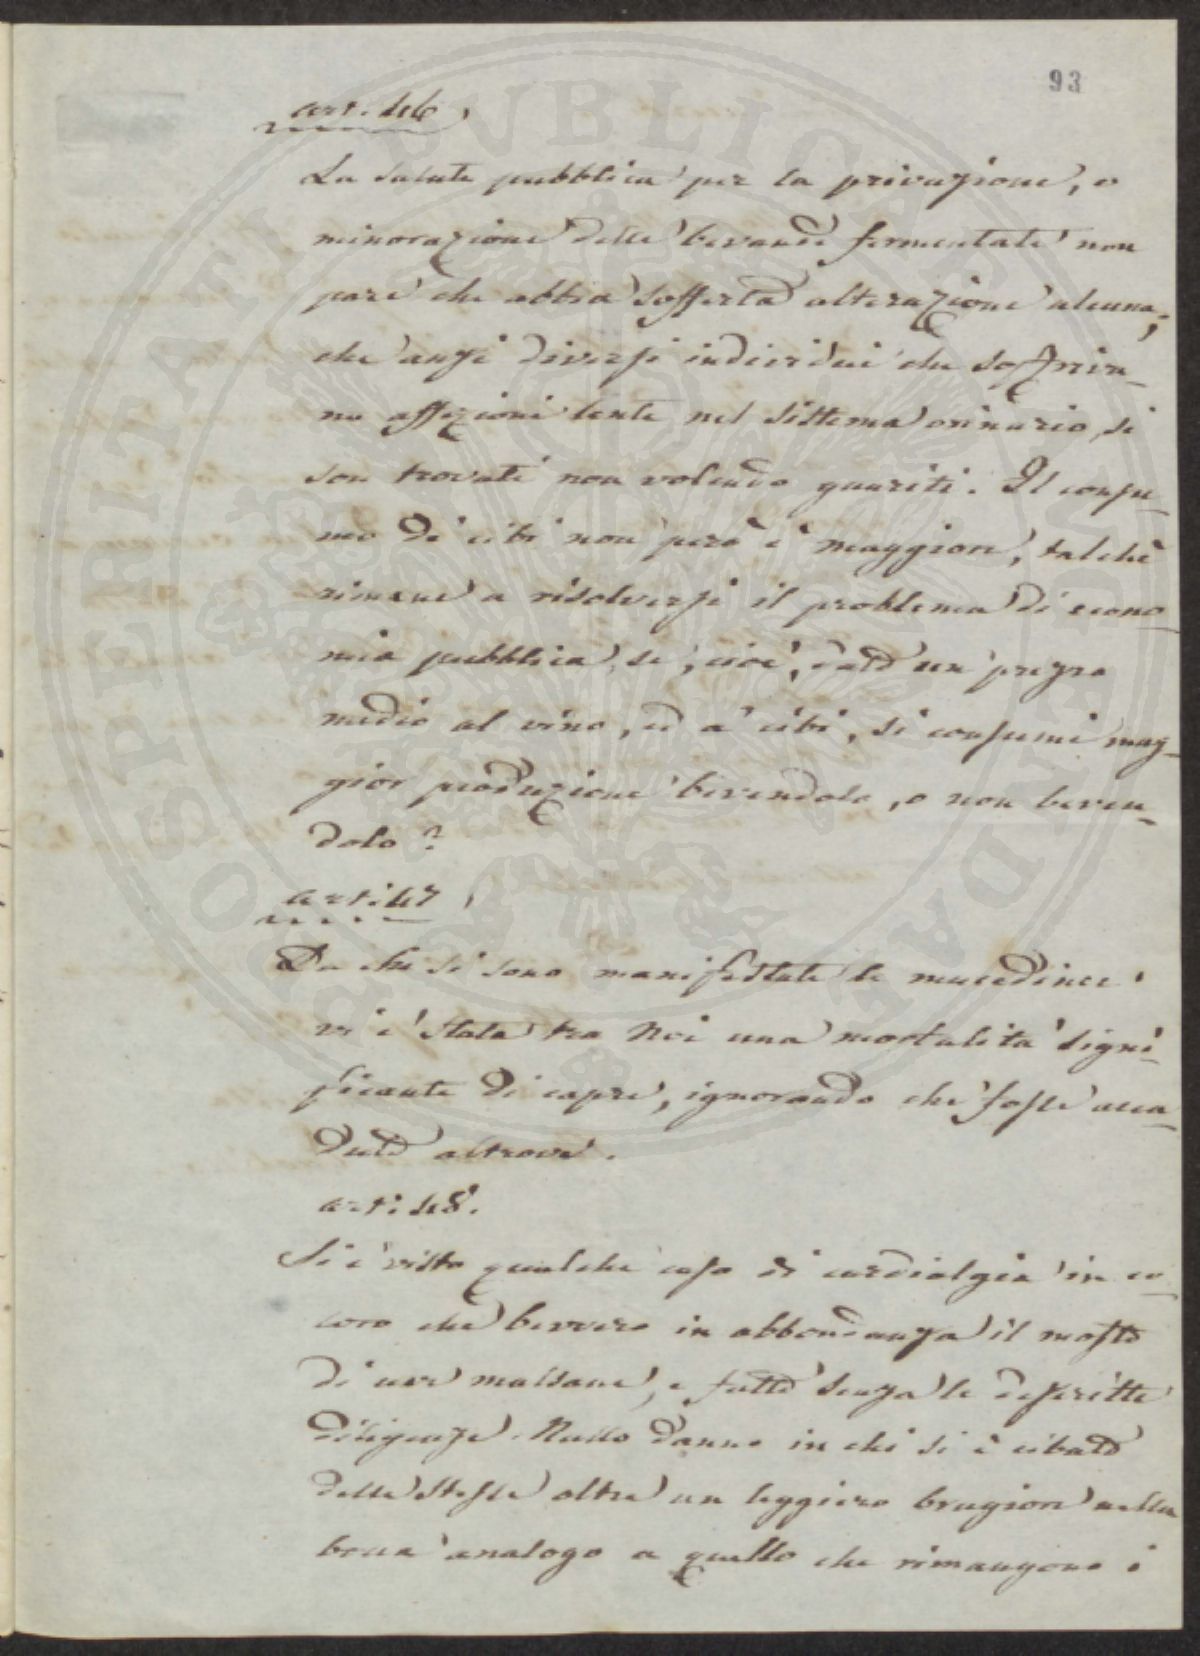 93
art. 46
La salute pubblica per la privazione, o
minorazione delle bevande fermentate non
pare che abbia sofferta alterazione alcuna;
che anzi diversi individui che soffriva-
no affezioni lente nel sistema orinario, si
son trovati non volendo guariti. Il consu-
mo di cibi non però è maggiore, talchè
rimane a risolversi il problema di econo-
mia pubblica, se, cioè, dato un prezzo
medio al vino, ed a' cibi, si consumi mag-
gior produzione bevendolo, o non beven-
dolo?
art. 47
Da che si sono manifestate le mucedinee
vi è stata tra Noi una mortalità signi-
ficante di capre, ignorando che fosse acca-
duto altrove.
art. 48.
Si è visto qualche caso di cardialgia in co-
loro che bevvero in abbondanza il mosto
di uve malsane, e fatto senza le descritte
diligenze. Nullo danno in chi si è cibato
delle stesse oltre un leggiero brugiore nella
bocca analogo a quello che rimangono i
PROSPERITATI PVBLICAE AVGENDAE